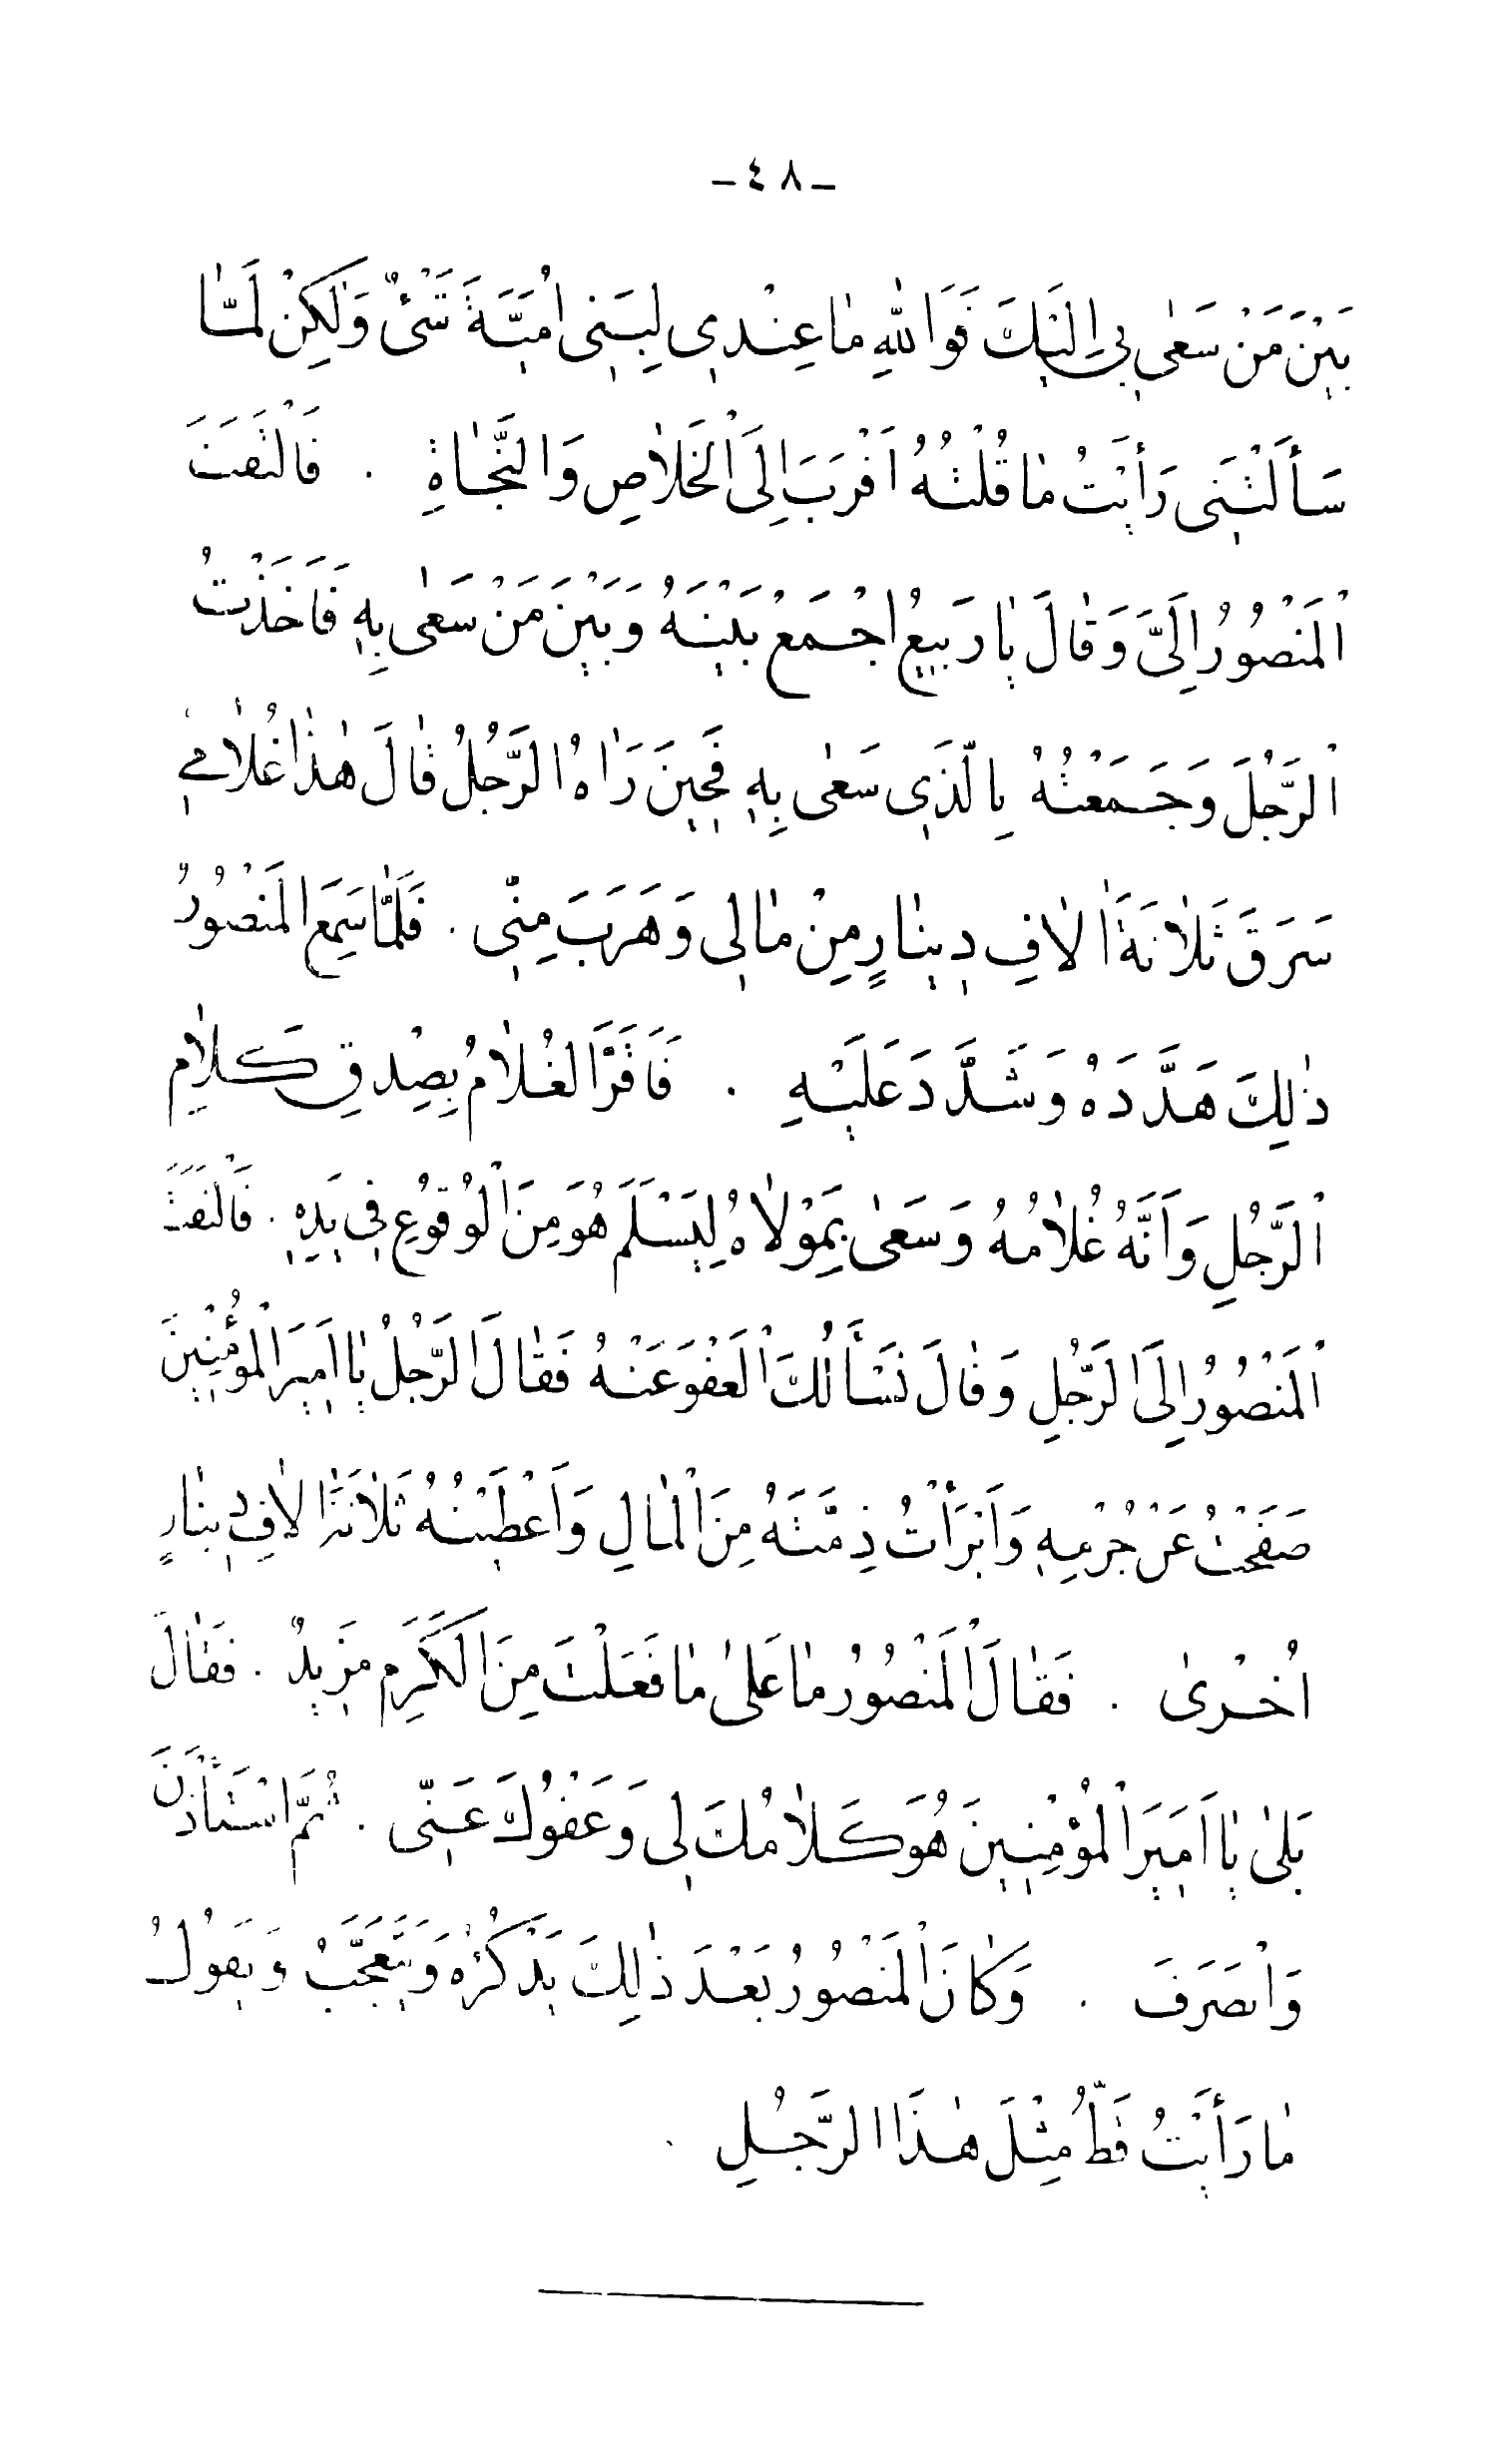 ـ ٤٨ ـ
بَيْنَ مَنْ سَعٰى بِي اِلَيْكَ فَوَاللّٰهِ مٰا عِنْدِي لِبَنِى اُمَيَّةَ شَىْءٌ وَلٰكِنْ لَمَّا
سَأَلْتَنِى رَأَيْتُ مٰا قُلْتُهُ اَقْرَبَ اِلَى الْخَلاٰصِ وَالنَّجٰاةِ . فَالْتَفَتَ
الْمَنْصُورُ اِلَىَّ وَقٰالَ يٰا رَبيعُ اجْمَعْ بَيْنَهُ وَبَيْنَ مَنْ سَعٰى بِهِ فَاَخَذْتُ
الرَّجُلَ وَجَمَعْتُهُ بِالَّذِي سَعٰى بِهِ فَحِينَ رَاٰهُ الرَّجُلُ قٰالَ هٰذٰا غُلاٰمِي
سَرَقَ ثَلاٰثَةَ اٰلاٰفِ دِينٰارٍ مِنْ مٰالِى وَهَرَبَ مِنِّى . فَلَمّٰا سَمِعَ الْمَنْصُورُ
ذٰلِكَ هَدَّدَهُ وَشَدَّدَ عَلَيْهِ . فَاَقَرَّ الغُلاٰمُ بِصِدْقِ كَلاٰمِ
الرَّجُلِ وَاَنَّهُ غُلاٰمُهُ وَسَعٰى بِمَوْلاٰهُ لِيَسْلَمَ هُوَ مِنَ الْوُقوُعِ فِى يَدِهِ . فَالْتَفَتَ
الْمَنْصُورُ اِلَى الرَّجُلِ وَقٰالَ نَسْأَلُكَ الْعَفْوَ عَنْهُ فَقٰالَ الرَّجُلُ يٰا اَمِيرَ الْمُؤْمِنِينَ
صَفَحْتُ عَنْ جُرْمِهِ وَاَبْرَأْتُ ذِمَّتَهُ مِنَ الْمٰالِ وَاَعْطَيْتُهُ ثَلاٰثَةَ اٰلاٰفِ دِينٰارٍ
اُخْرىٰ . فَقٰالَ الْمَنْصُورُ مٰا عَلىٰ مٰا فَعَلْتَ مِنَ الْكَرَمِ مَزِيدٌ . فَقٰالَ
بَلىٰ يٰا اَمِيرَ الْمُؤْمِنِينَ هُوَ كَلاٰمُكَ لِى وَعَفْوُكَ عَنِّى . ثُمَّ اسْتَأْذَنَ
وَانْصَرَفَ . وَكٰانَ الْمَنْصُورُ بَعْدَ ذٰلِكَ يَذْكُرُهُ وَيَتَعَجَّبُ وَيَقوُلُ
مٰا رَأَيْتُ قَطُّ مِثْلَ هٰذَا الرَّجُلِ .